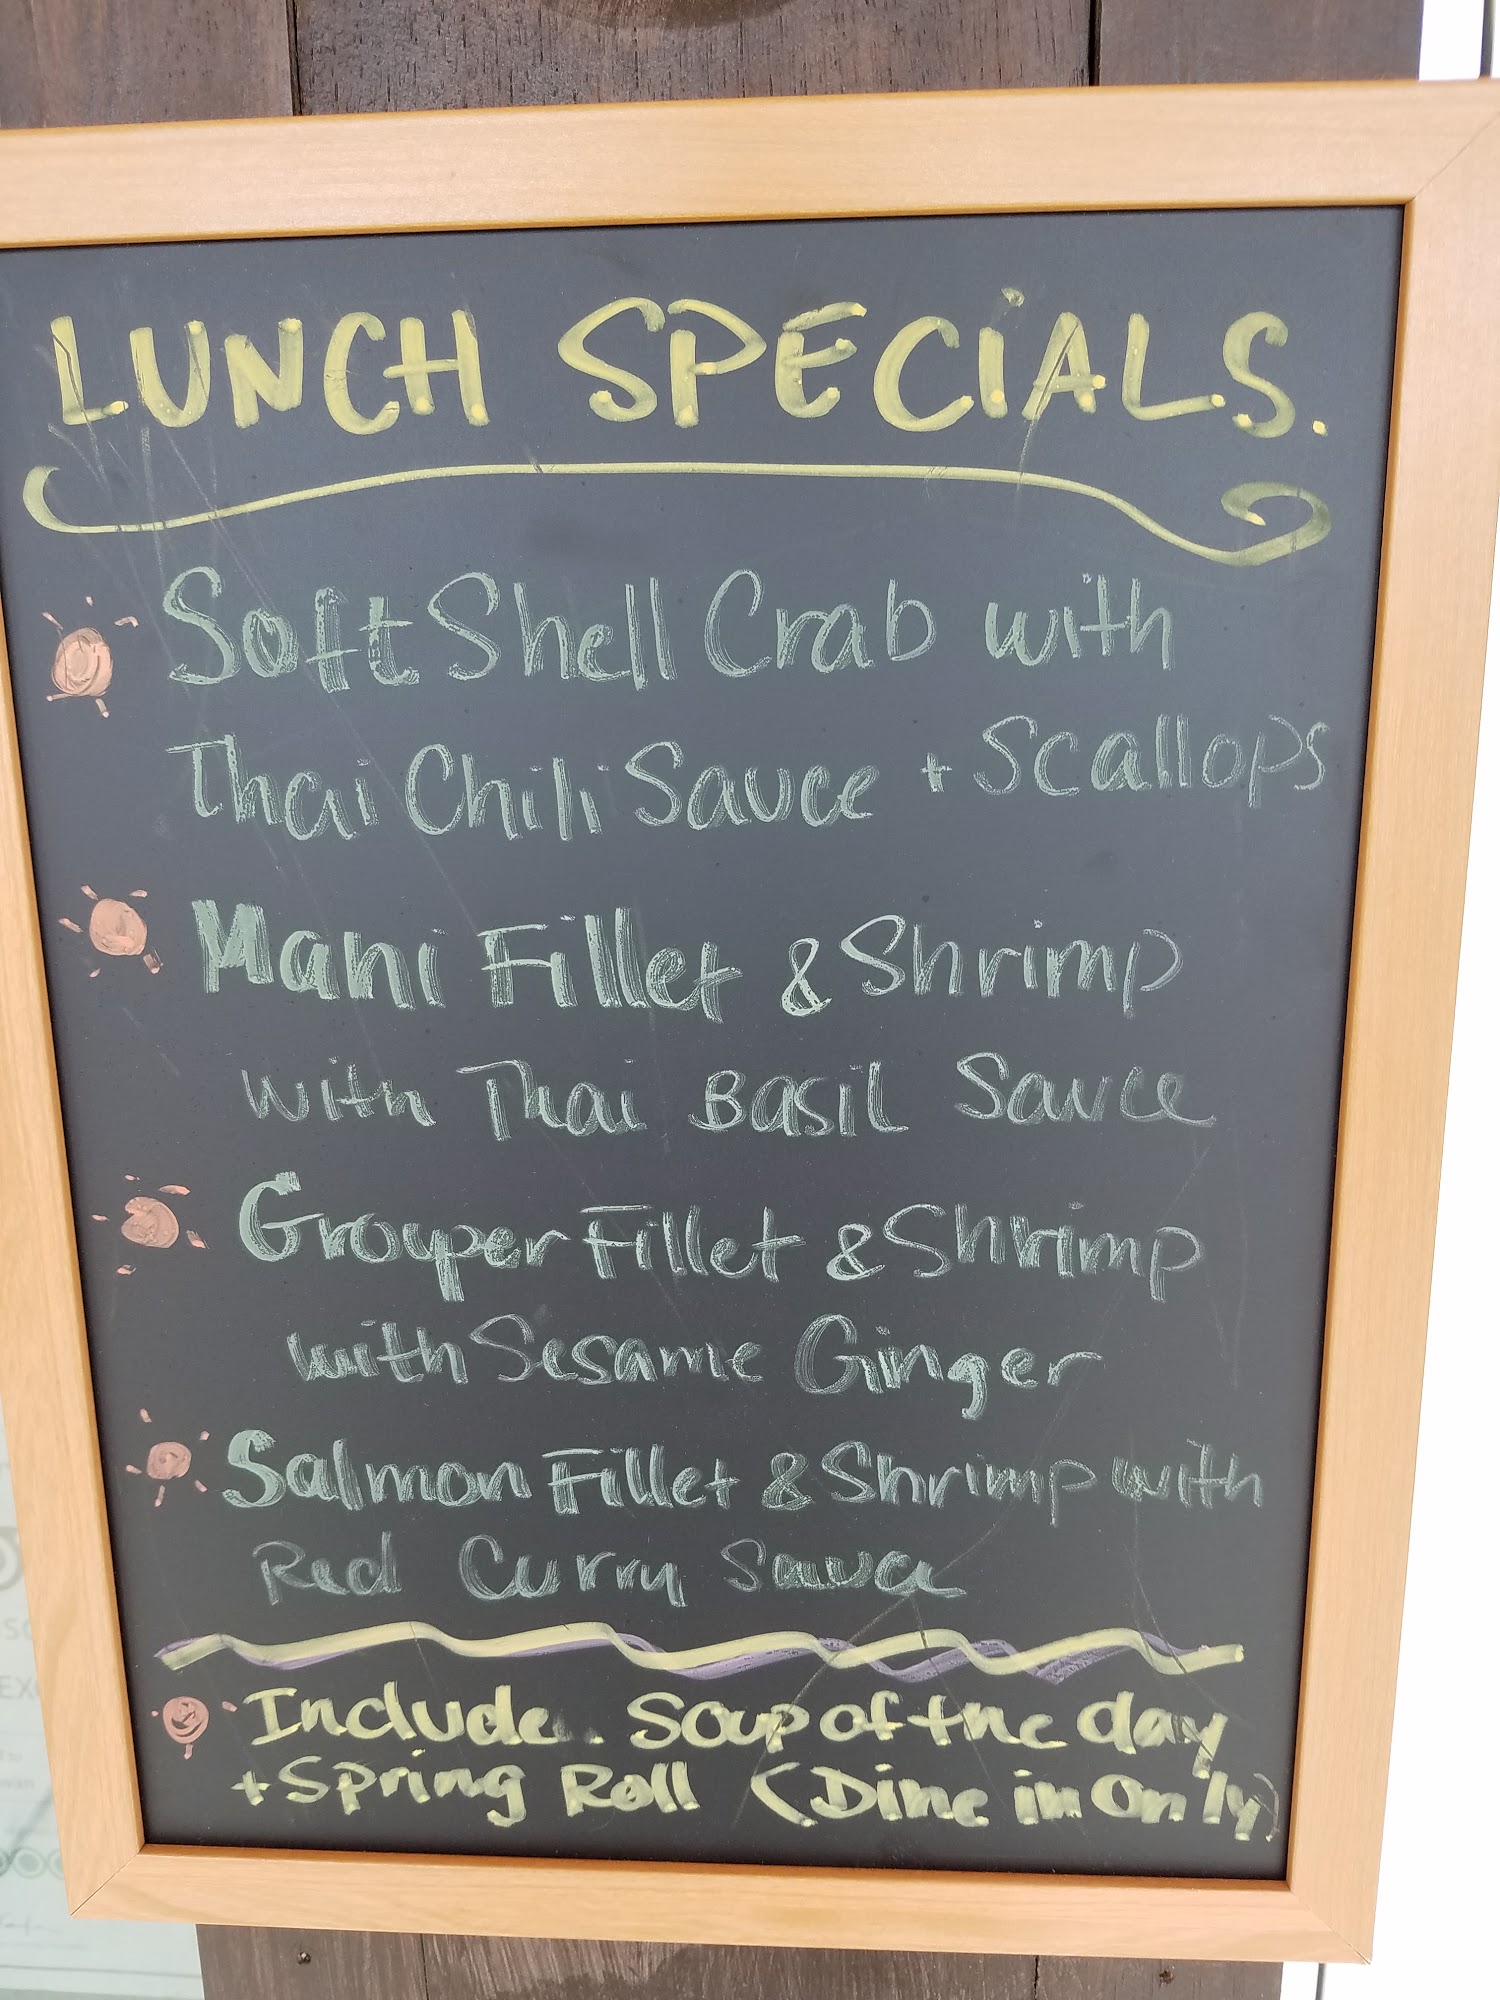 LUNCH SPECiALS.
Soft Shell Crab with
Thai Chili Sauce + Scallops
Mahi Fillet & Shrimp
with Thai Basil Sauce
Grouper Fillet & Shrimp
with Sesame Ginger
Salmon Fillet & Shrimp with
Red Curry Sauce
Include. Soup of the day
+ Spring Roll (Dine in Only)